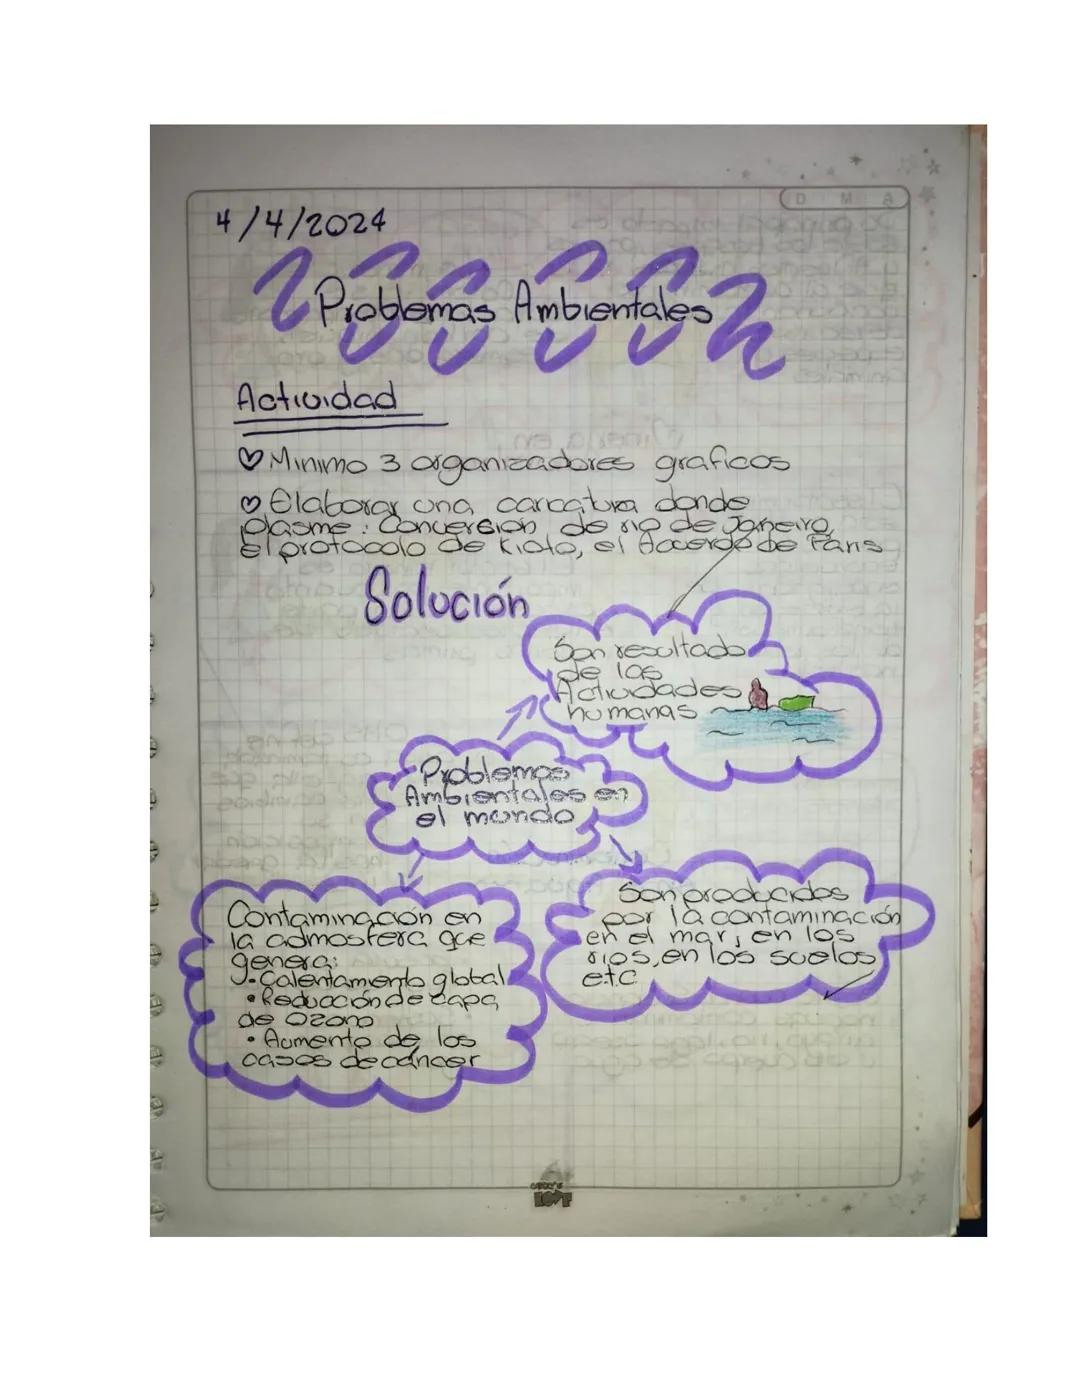 D M A
4/4/2024
Problemas Ambientales
Actividad
Minimo 3 organizadores graficos
Elaborar una caricatura donde
plasme: Conversión de rio de Janeiro,
el protocolo de Kioto, el Acuerdo de Paris
Solución
Son resultado
de las
Actividades
humanas
Problemas
Ambientales en
el mundo
Contaminación en
la admosfera que
genera:
• Calentamiento global
• Reducción de capa
de Ozono
• Aumento de los
casos de cáncer
Son producidos
por la contaminación
en el mar, en los
rios, en los suelos
etc